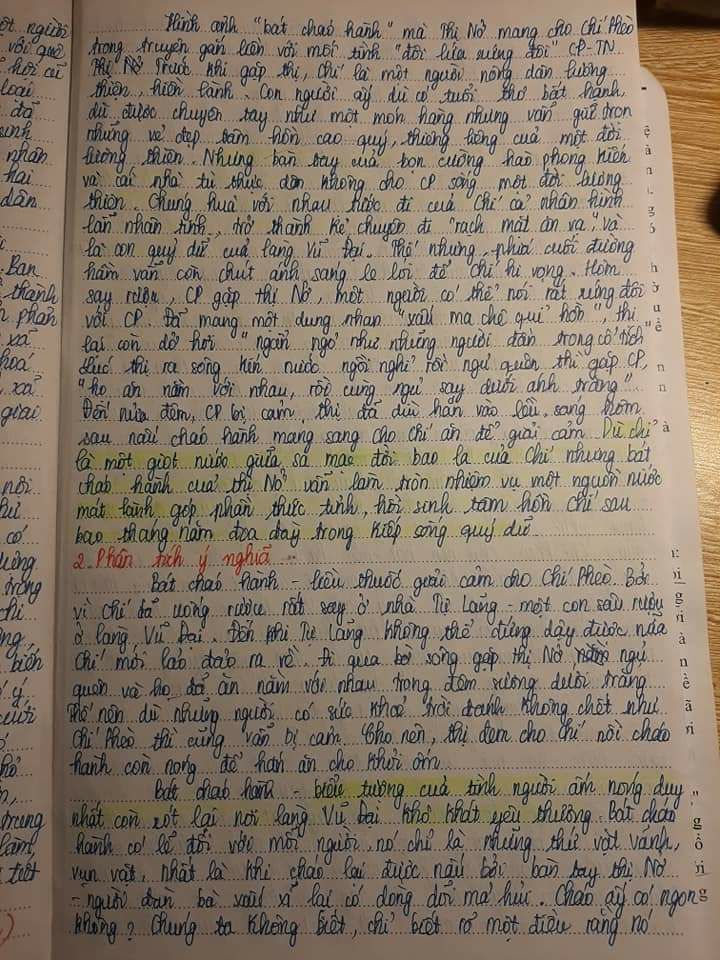 Hình ảnh "bát cháo hành" mà Thị Nở mang cho Chí Phèo
trong truyện gắn liền với mối tình "đôi lứa xứng đôi" CP-TN
Thị Nở. Trước khi gặp thị, Chí là một người nông dân lương
thiện, hiền lành. Con người ấy dù có tuổi thơ bất hạnh
dù được chuyền tay như một món hàng nhưng vẫn giữ trọn
những vẻ đẹp tâm hồn cao quý, thương lòng của một đời
lương thiện. Nhưng bàn tay của bọn cường hào phong kiến
và cái nhà tù thực dân không cho CP sống một đời lương
thiện. Chúng hùa với nhau tước đi của Chí cả nhân hình
lẫn nhân tính, trở thành kẻ chuyên đi "rạch mặt ăn vạ", và
là con quỷ dữ của làng Vũ Đại. Thế nhưng, phía cuối đường
hầm vẫn còn chút ánh sáng le lói để Chí hi vọng. Hôm
say rượu, CP gặp thị Nở, một người có thể nói rất xứng đôi
với CP. Đã mang một dung nhan "xấu ma chê quỉ hờn", thị
lại còn dở hơi "ngẩn ngơ như những người đần trong cổ tích"
Lúc thị ra sông kín nước ngồi nghỉ rồi ngủ quên thì gặp CP,
"họ ăn nằm với nhau, rồi cùng ngủ say dưới ánh trăng".
Đến nửa đêm, CP bị cảm, thị đã dìu hắn vào lều, sáng hôm
sau nấu cháo hành mang sang cho Chí ăn để giải cảm. Dù chỉ
là một giọt nước giữa sa mạc đời bao la của Chí nhưng bát
cháo hành của thị Nở vẫn làm tròn nhiệm vụ một nguồn nước
mát lành góp phần thức tỉnh, hồi sinh tâm hồn Chí sau
bao tháng năm đọa đày trong kiếp sống quỷ dữ.
2. Phân tích ý nghĩa
Bát cháo hành - liều thuốc giải cảm cho Chí Phèo. Bởi
vì Chí đã uống rượu rất say ở nhà Tự Lãng - một con sâu rượu
ở làng Vũ Đại. Đến khi Tự Lãng không thể đứng dậy được nữa
Chí mới lảo đảo ra về. Đi qua bờ sông gặp thị Nở nằm ngủ
quên và họ đã ăn nằm với nhau trong đêm sương dưới trăng
Thế nên dù những người có sức khoẻ trời đánh không chết như
Chí Phèo thì cũng vẫn bị cảm. Cho nên, thị đem cho Chí nồi cháo
hành còn nóng để hắn ăn cho khỏi ốm.
Bát cháo hành - biểu tượng của tình người ấm nóng duy
nhất còn sót lại nơi làng Vũ Đại khô khát yêu thương. Bát cháo
hành có lẽ đối với mỗi người, nó chỉ là những thứ vặt vãnh,
vụn vặt, nhất là khi cháo lại được nấu bởi bàn tay thị Nở
- người đàn bà xấu xí lại có dòng dõi mả hủi. Cháo ấy có ngon
không? Chúng ta không biết, chỉ biết rõ một điều rằng nó